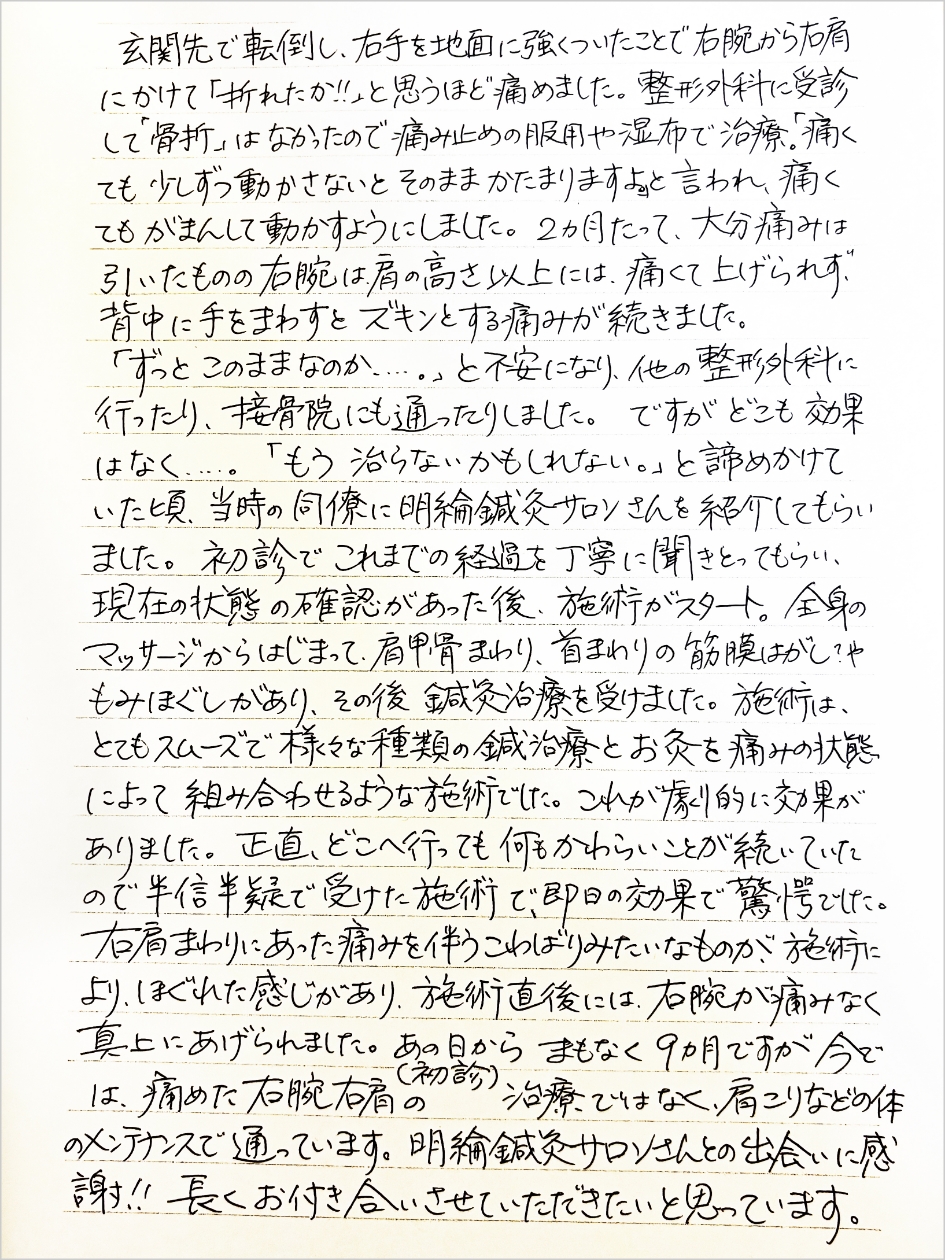 玄関先で転倒し、右手を地面に強くついたことで右腕から右肩
にかけて「折れたか!!」と思うほど痛めました。整形外科に受診
して「骨折」はなかったので痛み止めの服用や湿布で治療。「痛く
ても少しずつ動かさないとそのままかたまりますよ」と言われ、痛く
てもがまんして動かすようにしました。2ヵ月たって、大分痛みは
引いたものの右腕は肩の高さ以上には、痛くて上げられず、
背中に手をまわすとズキンとする痛みが続きました。
「ずっとこのままなのか……。」と不安になり、他の整形外科に
行ったり、接骨院にも通ったりしました。ですがどこも効果
はなく……。「もう治らないかもしれない。」と諦めかけて
いた頃、当時の同僚に明綸鍼灸サロンさんを紹介してもらい
ました。初診でこれまでの経過を丁寧に聞きとってもらい、
現在の状態の確認があった後、施術がスタート。全身の
マッサージからはじまって、肩甲骨まわり、首まわりの筋膜はがし?や
もみほぐしがあり、その後鍼灸治療を受けました。施術は、
とてもスムーズで様々な種類の鍼治療とお灸を痛みの状態
によって組み合わせるような施術でした。これが劇的に効果が
ありました。正直、どこへ行っても何もかわらいことが続いていた
ので半信半疑で受けた施術で、即日の効果で驚愕でした。
右肩まわりにあった痛みを伴うこわばりみたいなものが、施術に
より、ほぐれた感じがあり、施術直後には、右腕が痛みなく
真上にあげられました。あの日からまもなく9ヵ月ですが今で
は、痛めた右腕右肩の(初診)治療ではなく、肩こりなどの体
のメンテナンスで通っています。明綸鍼灸サロンさんとの出会いに感
謝!!長くお付き合いさせていただきたいと思っています。